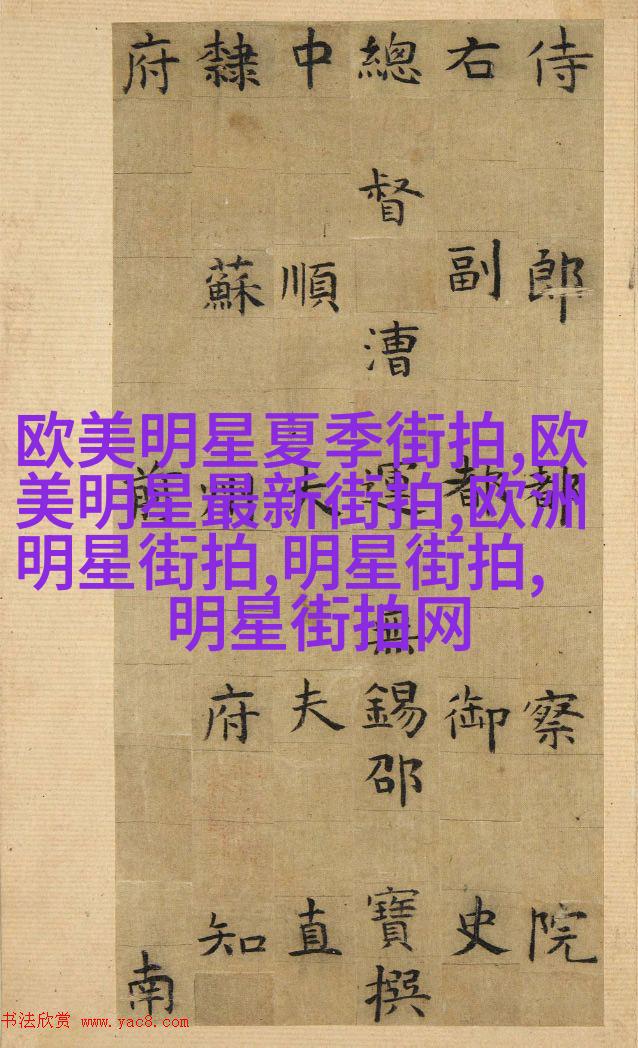 侍郎都察院
右副都御史
總督漕運無錫邵寶撰
中順大夫直
隸蘇州府知
府前南
欧美明星夏季街拍,欧
美明星最新街拍,欧洲
明星街拍,明星街拍,
明星街拍网
书法欣赏 www.yac8.com